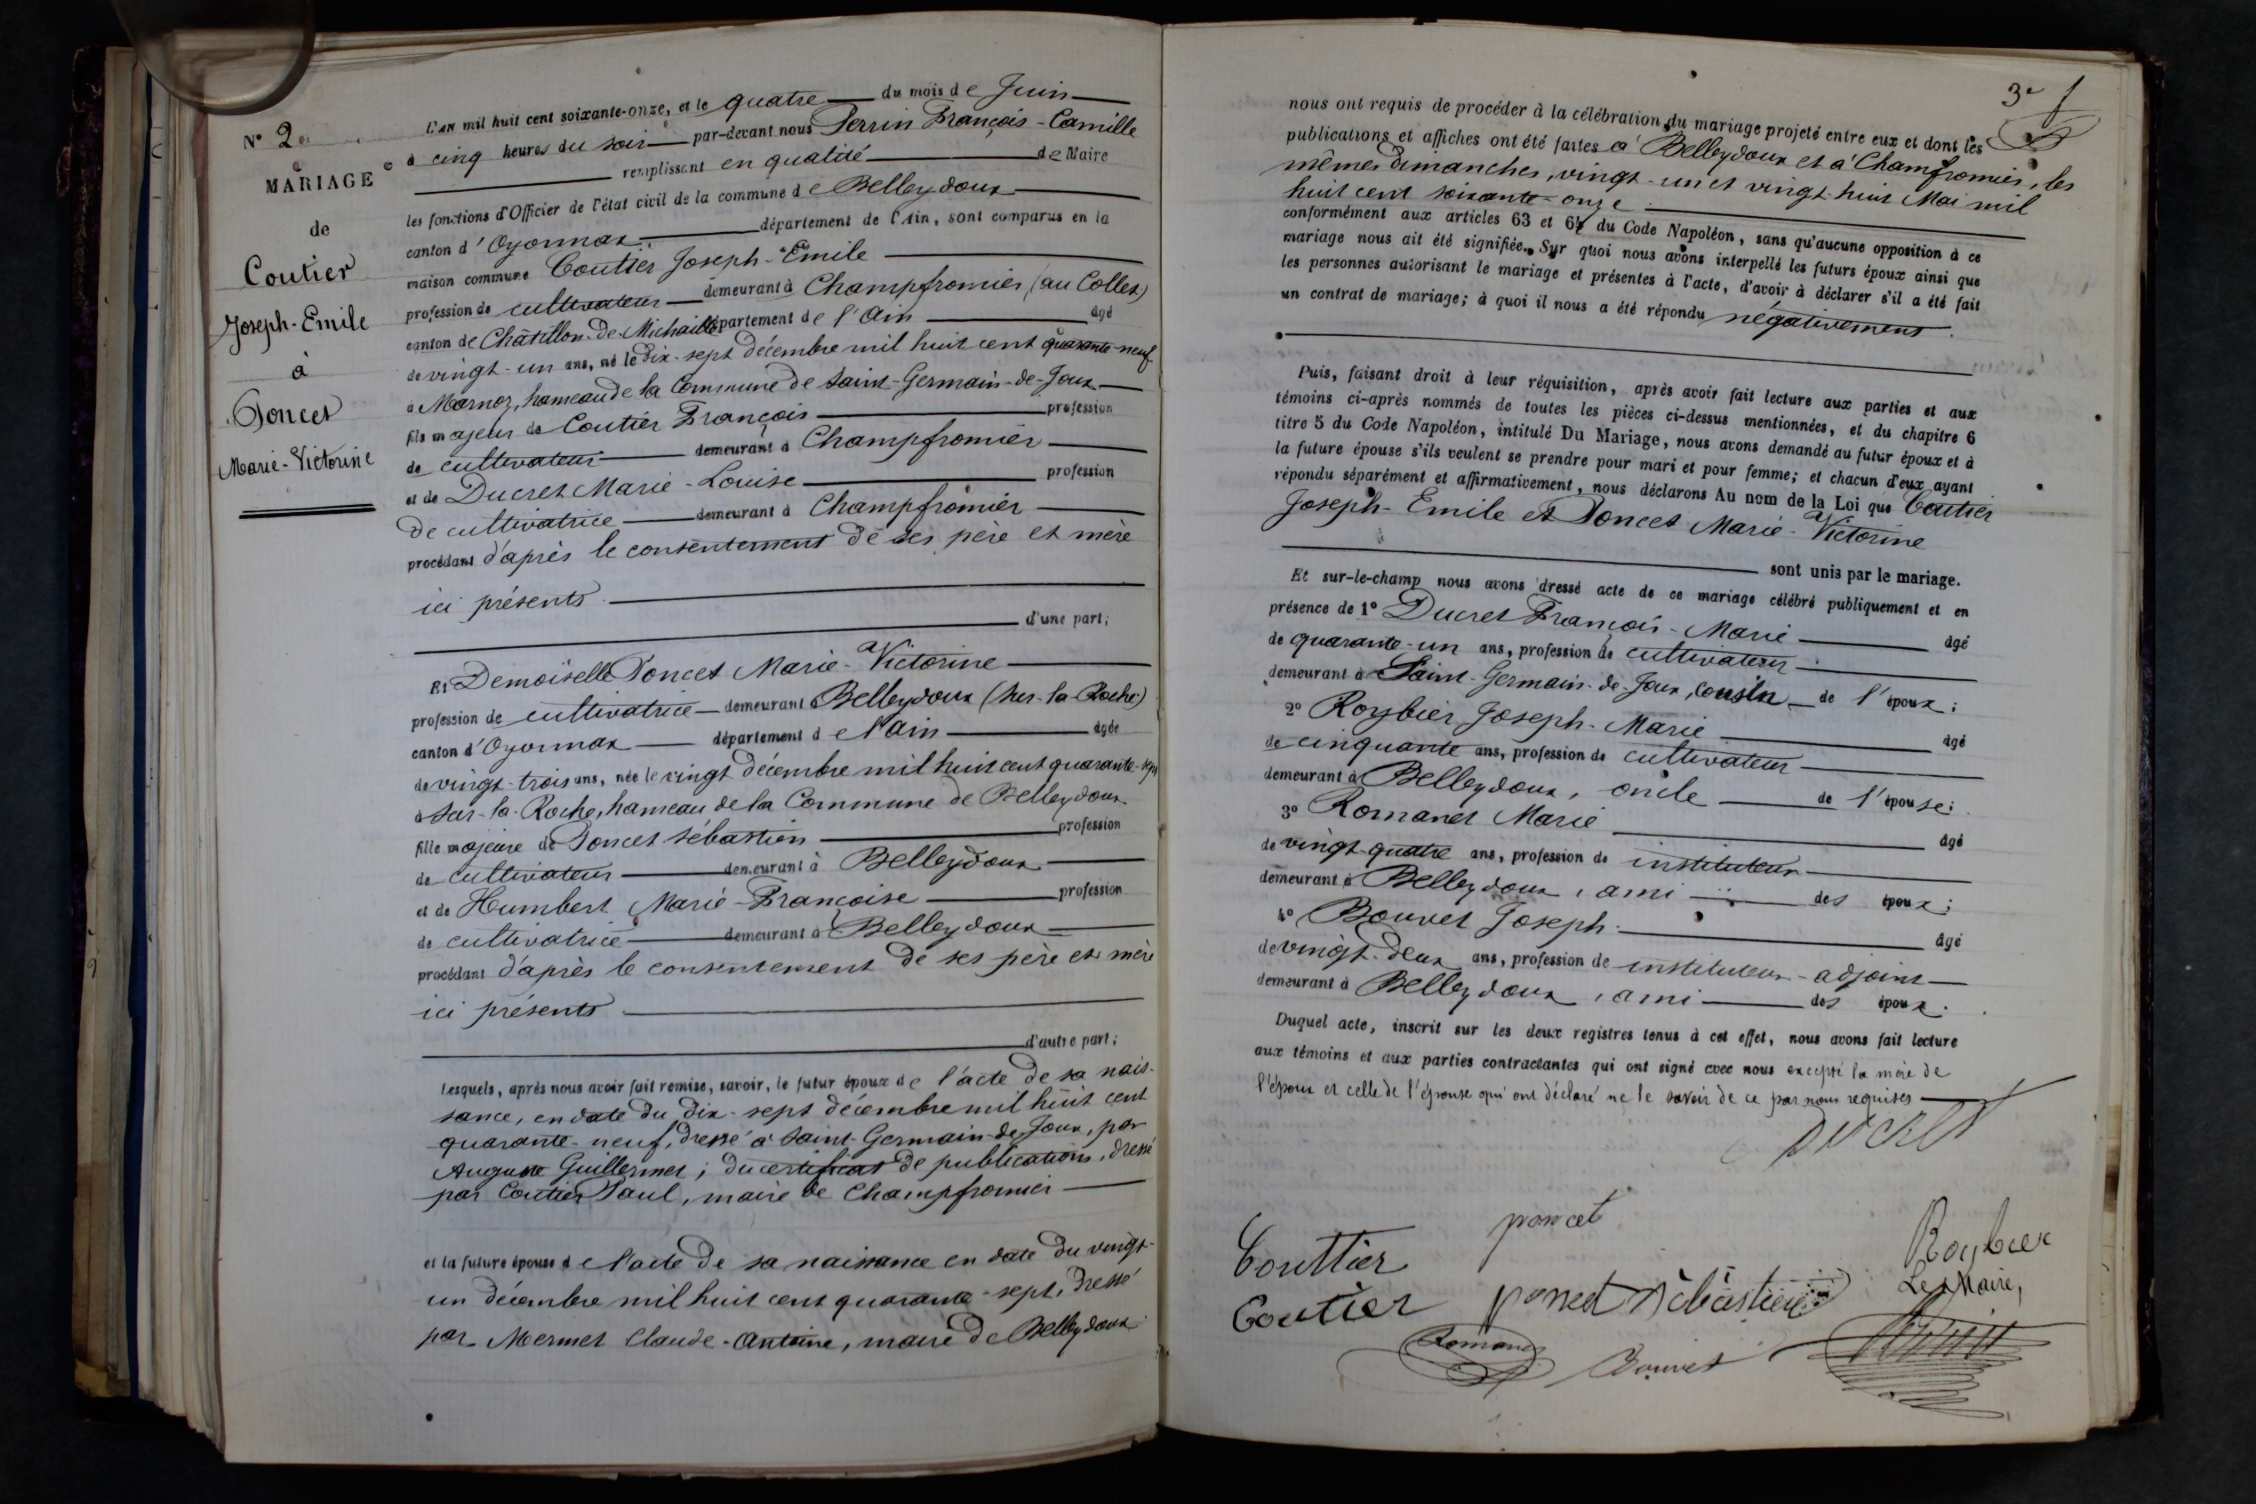 N° 2
MARIAGE
de
Coutier
Joseph-Emile
à
Poncet
Marie-Victorine
L'AN mil huit cent soixante-onze, et le quatre du mois de Juin
à cinq heures du soir par-devant nous Perrin François-Camille
remplissant en qualité de Maire
les fonctions d'Officier de l'état civil de la commune de Belleydoux
canton d'Oyonnax département de l'Ain, sont comparus en la
maison commune Coutier Joseph-Emile
profession de cultivateur demeurant à Champfromier (au Collet)
canton de Châtillon-de-Michaille département de l'Ain âgé
de vingt-un ans, né le dix-sept décembre mil huit cent quarante-neuf
à Marnoz, hameau de la Commune de Saint-Germain-de-Joux
fils majeur de Coutier François profession
de cultivateur demeurant à Champfromier
et de Ducret Marie-Louise profession
de cultivatrice demeurant à Champfromier
procédant d'après le consentement de ses père et mère
ici présents
d'une part;
Et Demoiselle Poncet Marie-Victorine
profession de cultivatrice demeurant à Belleydoux (sur-la-Roche)
canton d'Oyonnax département de l'ain âgée
de vingt-trois ans, née le vingt décembre mil huit cent quarante-sept
à sur-la-Roche, hameau de la Commune de Belleydoux
fille majeure de Poncet Sébastien profession
de cultivateur demeurant à Belleydoux
et de Humbert Marie-Françoise profession
de cultivatrice demeurant à Belleydoux
procédant d'après le consentement de ses père et mère
ici présents
d'autre part;
Lesquels, après nous avoir fait remise, savoir, le futur époux de l'acte de sa nais-
sance, en date du dix-sept décembre mil huit cent
quarante-neuf, dressé à Saint-Germain-de-Joux, par
Auguste Guillermet; du certificat de publications, dressé
par Coutier Paul, maire de Champfromier
et la future épouse de l'acte de sa naissance en date du vingt-
un décembre mil huit cent quarante-sept, dressé
par Mermet Claude-Antoine, maire de Belleydoux
3e
nous ont requis de procéder à la célébration du mariage projeté entre eux et dont les
publications et affiches ont été faites à Belleydoux et à Champfromier, les
mêmes dimanches, vingt-un et vingt-huit Mai mil
huit cent soixante-onze
conformément aux articles 63 et 64 du Code Napoléon, sans qu'aucune opposition à ce
mariage nous ait été signifiée. Sur quoi nous avons interpellé les futurs époux ainsi que
les personnes autorisant le mariage et présentes à l'acte, d'avoir à déclarer s'il a été fait
un contrat de mariage; à quoi il nous a été répondu négativement.
Puis, faisant droit à leur réquisition, après avoir fait lecture aux parties et aux
témoins ci-après nommés de toutes les pièces ci-dessus mentionnées, et du chapitre 6
titre 5 du Code Napoléon, intitulé Du Mariage, nous avons demandé au futur époux et à
la future épouse s'ils veulent se prendre pour mari et pour femme; et chacun d'eux ayant
répondu séparément et affirmativement, nous déclarons Au nom de la Loi que Coutier
Joseph-Emile et Poncet Marie-Victorine
sont unis par le mariage.
Et sur-le-champ nous avons dressé acte de ce mariage célébré publiquement et en
présence de 1° Ducret François-Marie âgé
de quarante-un ans, profession de cultivateur
demeurant à Saint-Germain-de-Joux, cousin de l'époux;
2° Roybier Joseph-Marie âgé
de cinquante ans, profession de cultivateur
demeurant à Belleydoux, oncle de l'épouse;
3° Romanet Marie âgé
de vingt-quatre ans, profession de instituteur
demeurant à Belleydoux, ami des époux;
4° Bouvet Joseph âgé
de vingt-deux ans, profession de instituteur-adjoint
demeurant à Belleydoux, ami des époux.
Duquel acte, inscrit sur les deux registres tenus à cet effet, nous avons fait lecture
aux témoins et aux parties contractantes qui ont signé avec nous excepté la mère de
l'époux et celle de l'épouse qui ont déclaré ne le savoir de ce par nous requises
Ducret
poncet
Couttier
Roybier
Le Maire,
Coutier
poncet Sébastien
Romanet
Bouvet
Perrin